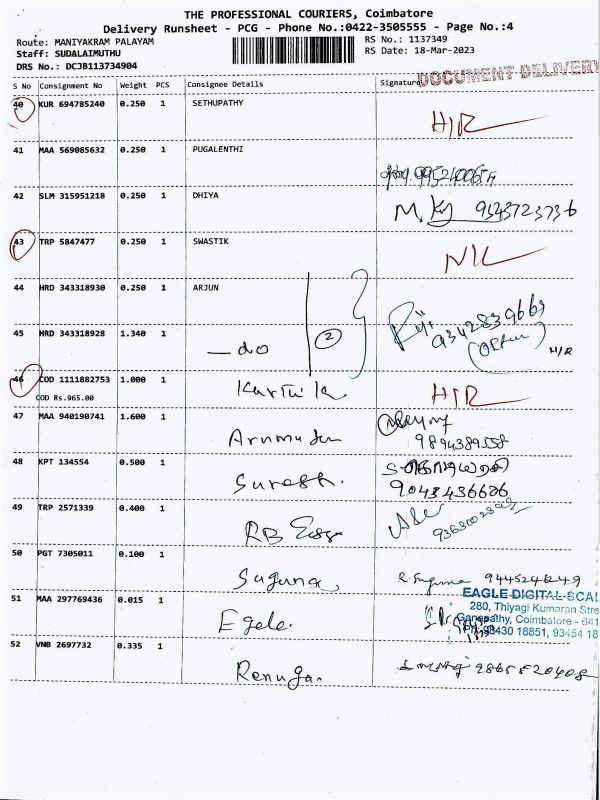 THE PROFESSIONAL COURIERS, Coimbatore
Delivery Runsheet - PCG - Phone No.:0422-3505555 - Page No.:4
Route: MANIYAKRAM PALAYAM
RS No.: 1137349
Staff: SUDALAIMUTHU
RS Date: 18-Mar-2023
DRS No.: DCJB113734904
DOCUMENT DELIVERY
S No Consignment No Weight PCS Consignee Details Signature
40 KUR 694785240 0.250 1 SETHUPATHY
H/R
41 MAA 569085632 0.250 1 PUGALENTHI
42 SLM 315951218 0.250 1 DHIYA
9343723736
43 TRP 5847477 0.250 1 SWASTIK
NIL
44 HRD 343318930 0.250 1 ARJUN
9342839669
45 HRD 343318928 1.340 1
— do 2
H/R
46 COD 1111882753 1.000 1 Karthik H/R
COD Rs.965.00
47 MAA 940190741 1.600 1
9894389558
48 KPT 134554 0.500 1 Suresh.
9043436686
49 TRP 2571339 0.400 1
50 PGT 7305011 0.100 1 Suguna R. Suguna 9445241249
51 MAA 297769436 0.015 1 Egele
EAGLE DIGITAL SCAL
280, Thiyagi Kumaran Stre
Ganapathy, Coimbatore - 641
Ph: 98430 18851, 93454 18
52 VNB 2697732 0.335 1 Renuga. 9865820408